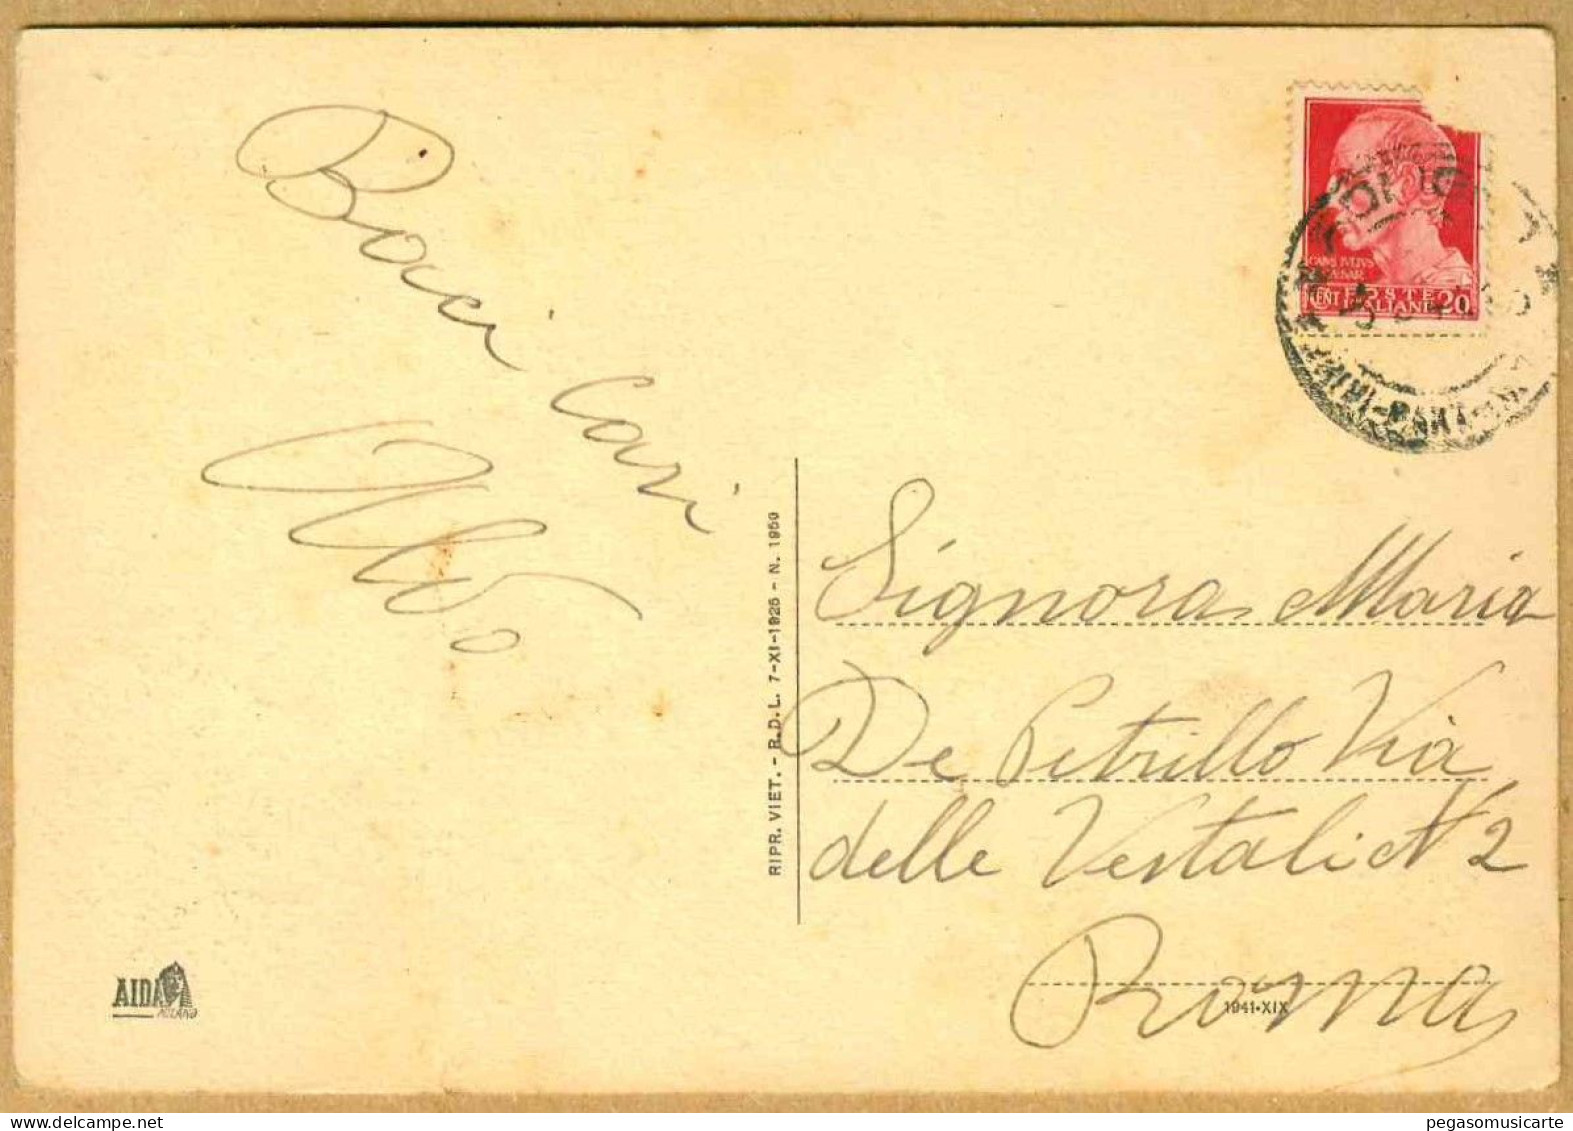 Baci Cari
Aldo
RIPR. VIET. - R.D.L. 7-XI-1925 - N. 1950
CAIVS IVLIVS
CENT POSTE 20
ITALIANE
Signora Maria
De Petrillo Via
delle Vestali N 2
Roma
1941-XIX
AIDA
MILANO
delcampe.net
pegasomusicarte